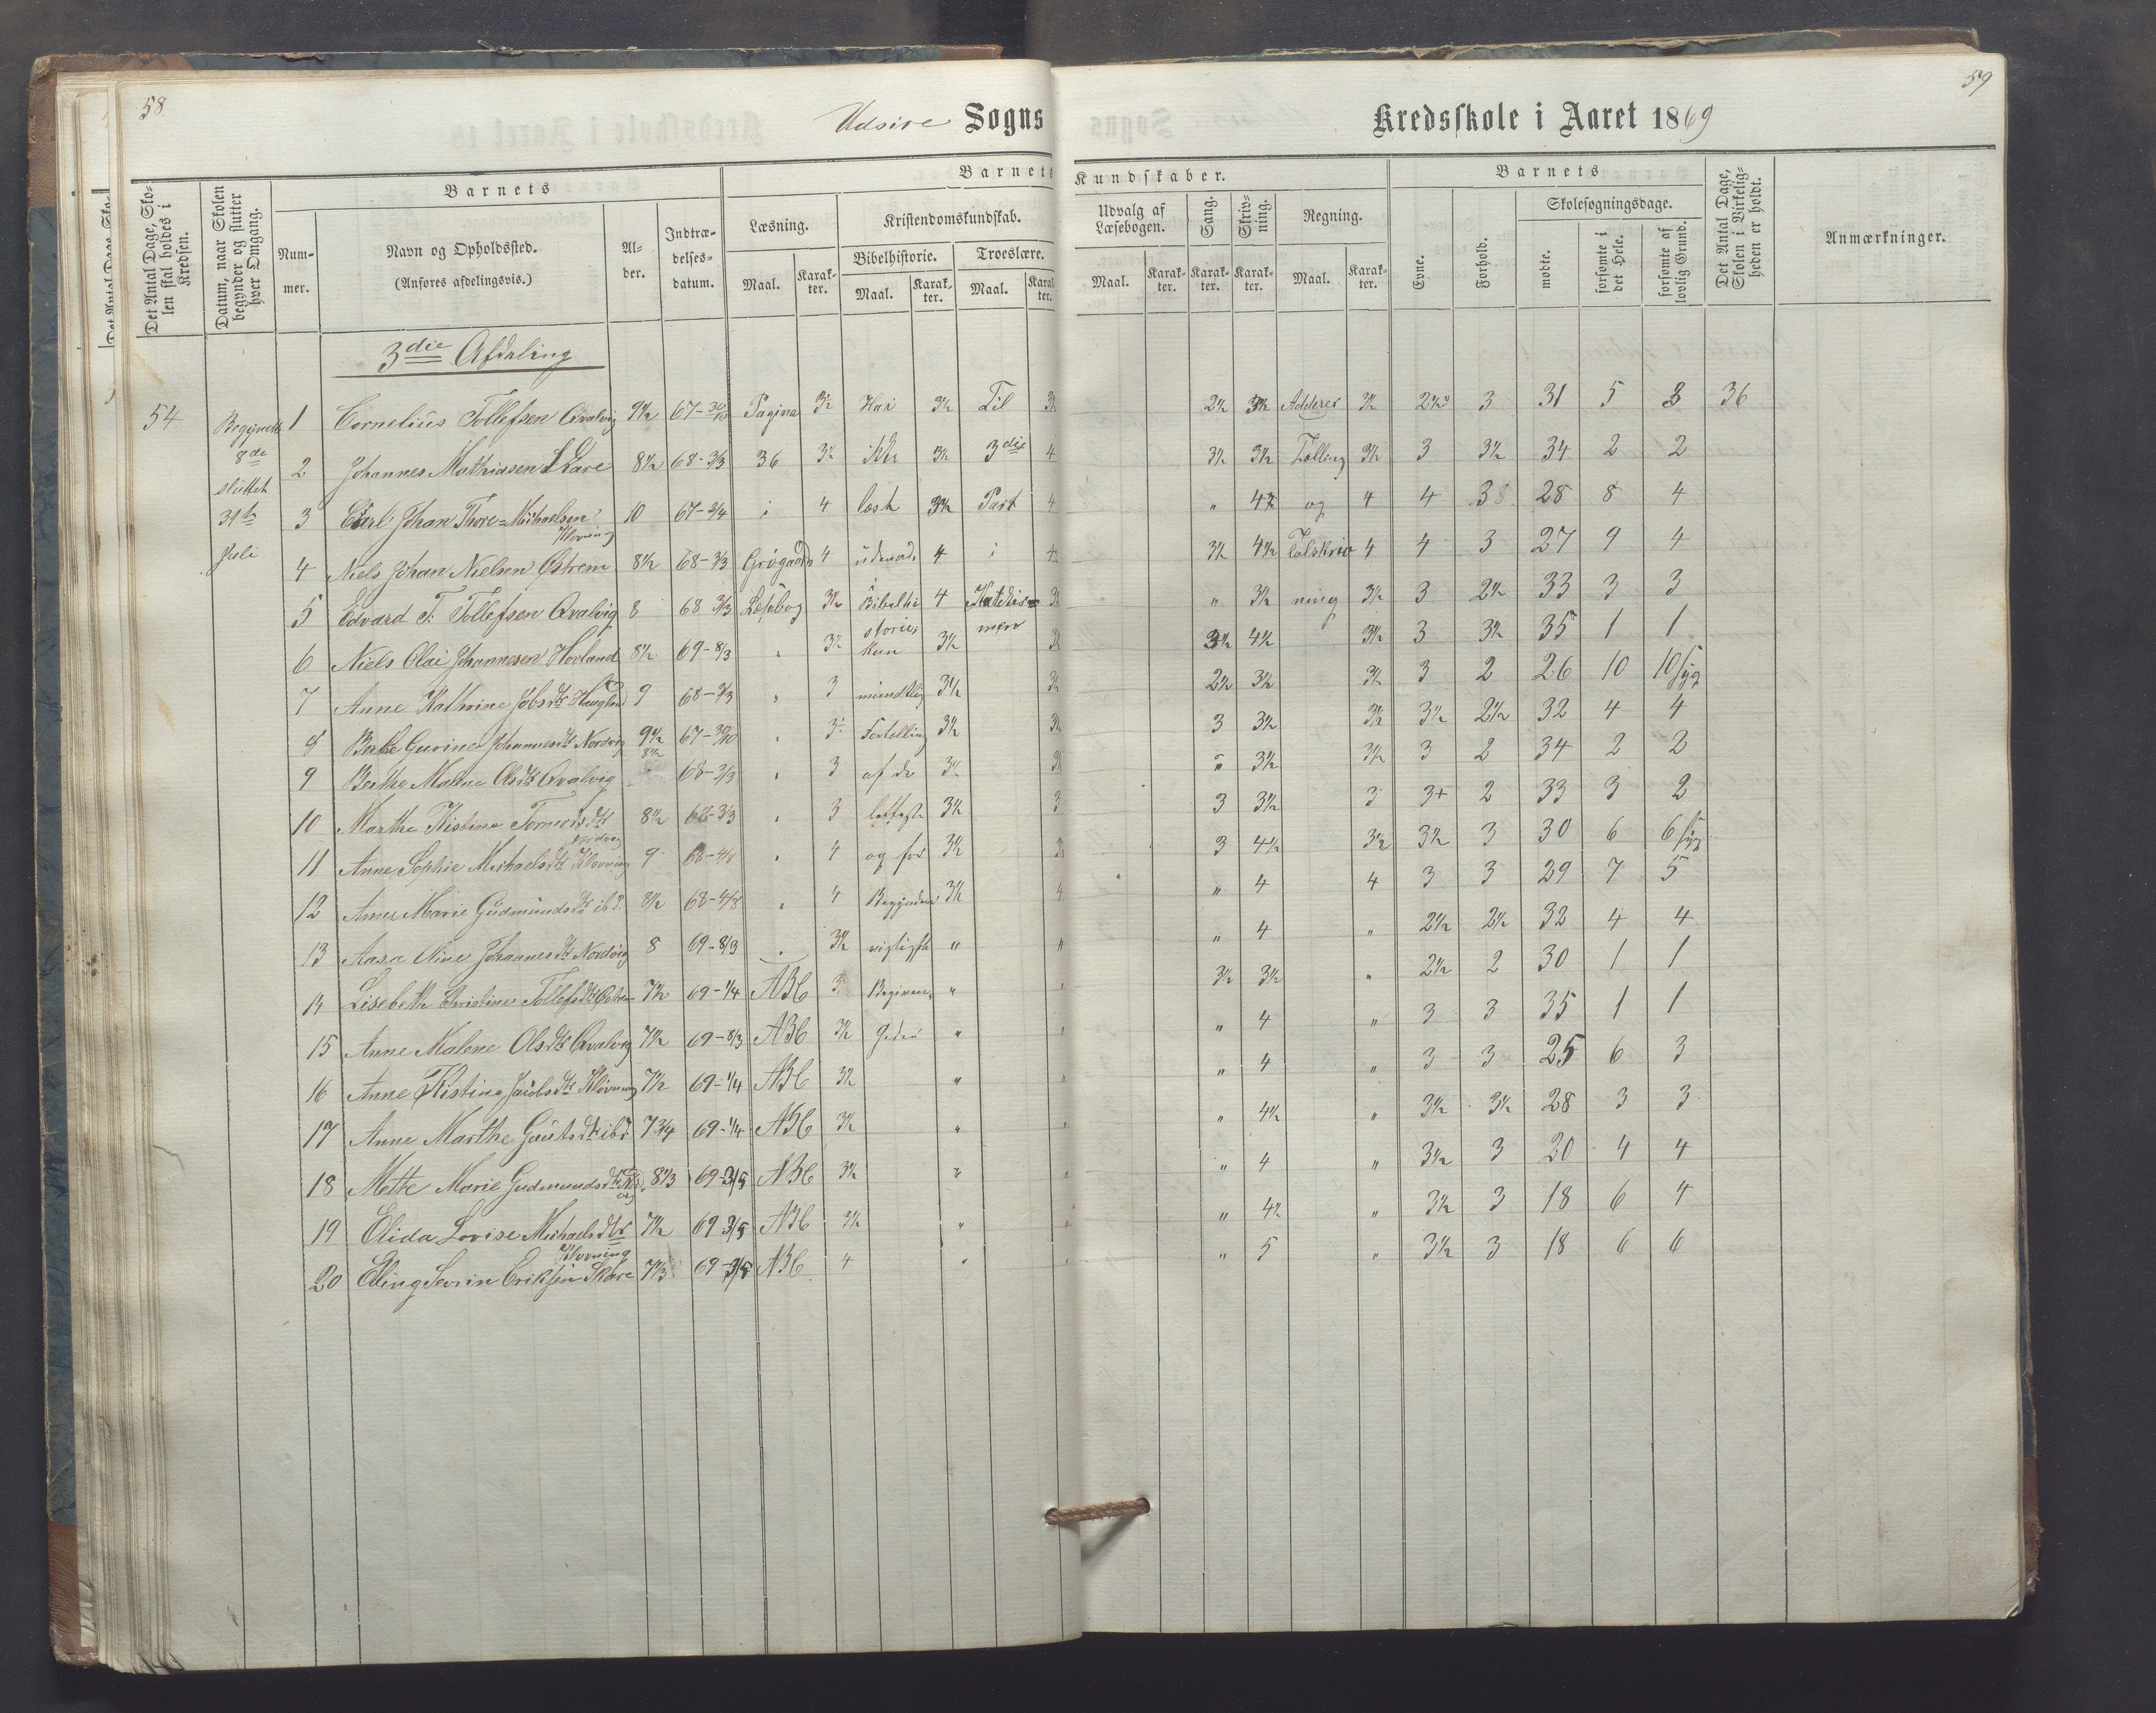 58
Udsire Sogns
Kredsskole i Aaret 1869
59
Det Antal Dage, Skolen skal holdes i Kredsen.
Datum, naar Skolen begynder og slutter hver Omgang.
Barnets
Nummer.
Navn og Opholdssted.
(Anføres afdelingsvis.)
Alder.
Indtrædelsesdatum.
Barnets Kundskaber.
Læsning.
Maal. Karakter.
Kristendomskundskab.
Bibelhistorie. Troeslære.
Maal. Karakter. Maal. Karakter.
Udvalg af Læsebogen.
Maal. Karakter.
Sang.
Karakter.
Skrivning.
Karakter.
Regning.
Maal. Karakter.
Barnets
Evne.
Forhold.
Skolesøgningsdage.
mødte.
forsømte i det Hele.
forsømte af lovlig Grund.
Det Antal Dage, Skolen i Virkeligheden er holdt.
Anmærkninger.
3die Afdeling
54 Begyndt 1 Cornelius Tollefsen Qvalvig 9½ 67-30/10 Pagina 3½ Har 3½ Til 3½ 2½ 3½ Adderer 3½ 3 31 5 3 36
8de
2 Johannes Mathiassen Skare 8½ 68-3/3 36 3½ 3½ 3die 4 3½ 3½ Tælling 3½ 3 3½ 34 2 2
sluttet
31te 3 Carl Johan Thore=Michaelsen Klovning 10 67-2/4 i 4 læst 3½ Part 4 " og 4 4 3 28 8 4
Juli 4 Niels Johan Nielsen Østrem 8½ 68-3/3 Grøgaards 4 udenad 4 i 3½ 4½ Talskriv 4 4 3 27 9 4
5 Edvard T. Tollefsen Qvalvig 8 68 3/3 Læsebog 3½ Bibelhi 4 Katekis= 3½ " 3½ ning 3½ 3 2½ 33 3 3
storie, mers
6 Niels Olai Johannesen Hovland 8½ 69-8/3 " 3½ Kun 3½ 3½ 3½ 4½ 3½ 3 3½ 35 1 1
7 Anne Kathrine Jobsdtr Haugland 9 68-3/3 " 3 mundtlig 3½ 3½ 2½ 3½ 3½ 3 2 26 10 10 syg
8 Berte Gurine Johannesdtr Nordvig 9½ 67-30/10 " 3½ Fortælling 3½ 3½ 3 3½ 3½ 3½ 2½ 32 4 4
9 Berthe Malene Olsdtr Qvalvig 8½ 68-3/3 " 3 af de 3½ 3½ " 3½ 3½ 3 2 34 2 2
10 Marthe Kistine Tormodsdtr Nordvig 8½ 68-3/3 " 3 letteste 3½ 3 3 3½ 3 3+ 2 33 3 2
11 Anne Sophie Michaelsdtr Klovning 9 68-4/8 " 4 og for 3½ 3½ 3 4½ 3½ 3½ 3 30 6 6 syg
12 Anne Marie Gudmundsdtr ibd. 8½ 68-4/8 " 4 Begyndere 3½ 4 " 4 4 3 3 29 7 5
13 Aasa Nine Johannesdtr Nordvig 8 69-8/3 " 3½ vigtigste " " " 4 " 2½ 2½ 32 4 4
14 Lisebeth Christine Tollefsdtr 7½ 69-1/4 ABC 3 Begiven- " " 3½ 3½ " 2½ 2 30 1 1
15 Anne Malene Olsdtr Qvalvig 7½ 69-8/3 ABC 3½ heder " " " 4 " 3 3 35 1 1
16 Anne Kistine Jacobsdtr Klovning 7½ 69-1/4 ABC 3½ " " " 4 " 3 3 25 6 3
17 Anne Marthe Gautsdtr ibd 7¾ 69-1/4 ABC 3½ " " " 4½ " 3½ 3½ 28 3 3
18 Mette Marie Gudmundsdtr 8⅓ 69-3/5 ABC 3½ " " " 4 " 3½ 3 20 4 4
19 Elida Lovise Michaelsdtr Klovning 7½ 69 3/5 ABC 3½ " " " 4½ " 3½ 3 18 6 4
20 Elling Sevrin Eriksen Skare 7⅓ 69-3/5 ABC 4 " " " 5 " 3½ 3 18 6 6